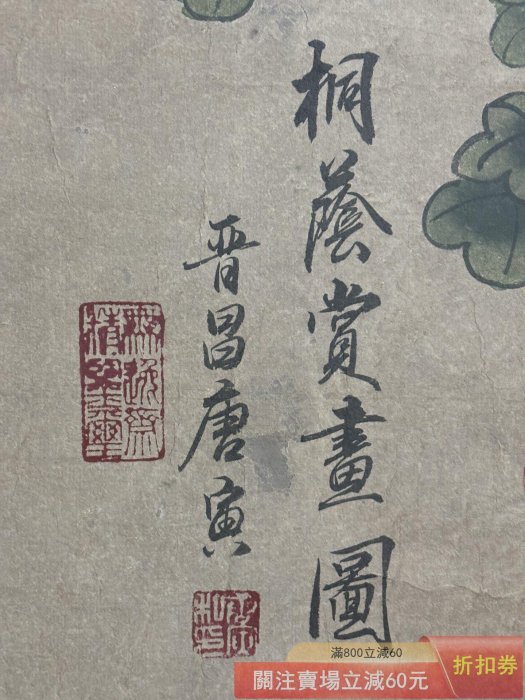 桐蔭賞畫圖
晋昌唐寅
無逸齋
滿800立減60
關注賣場立減60元
折扣券